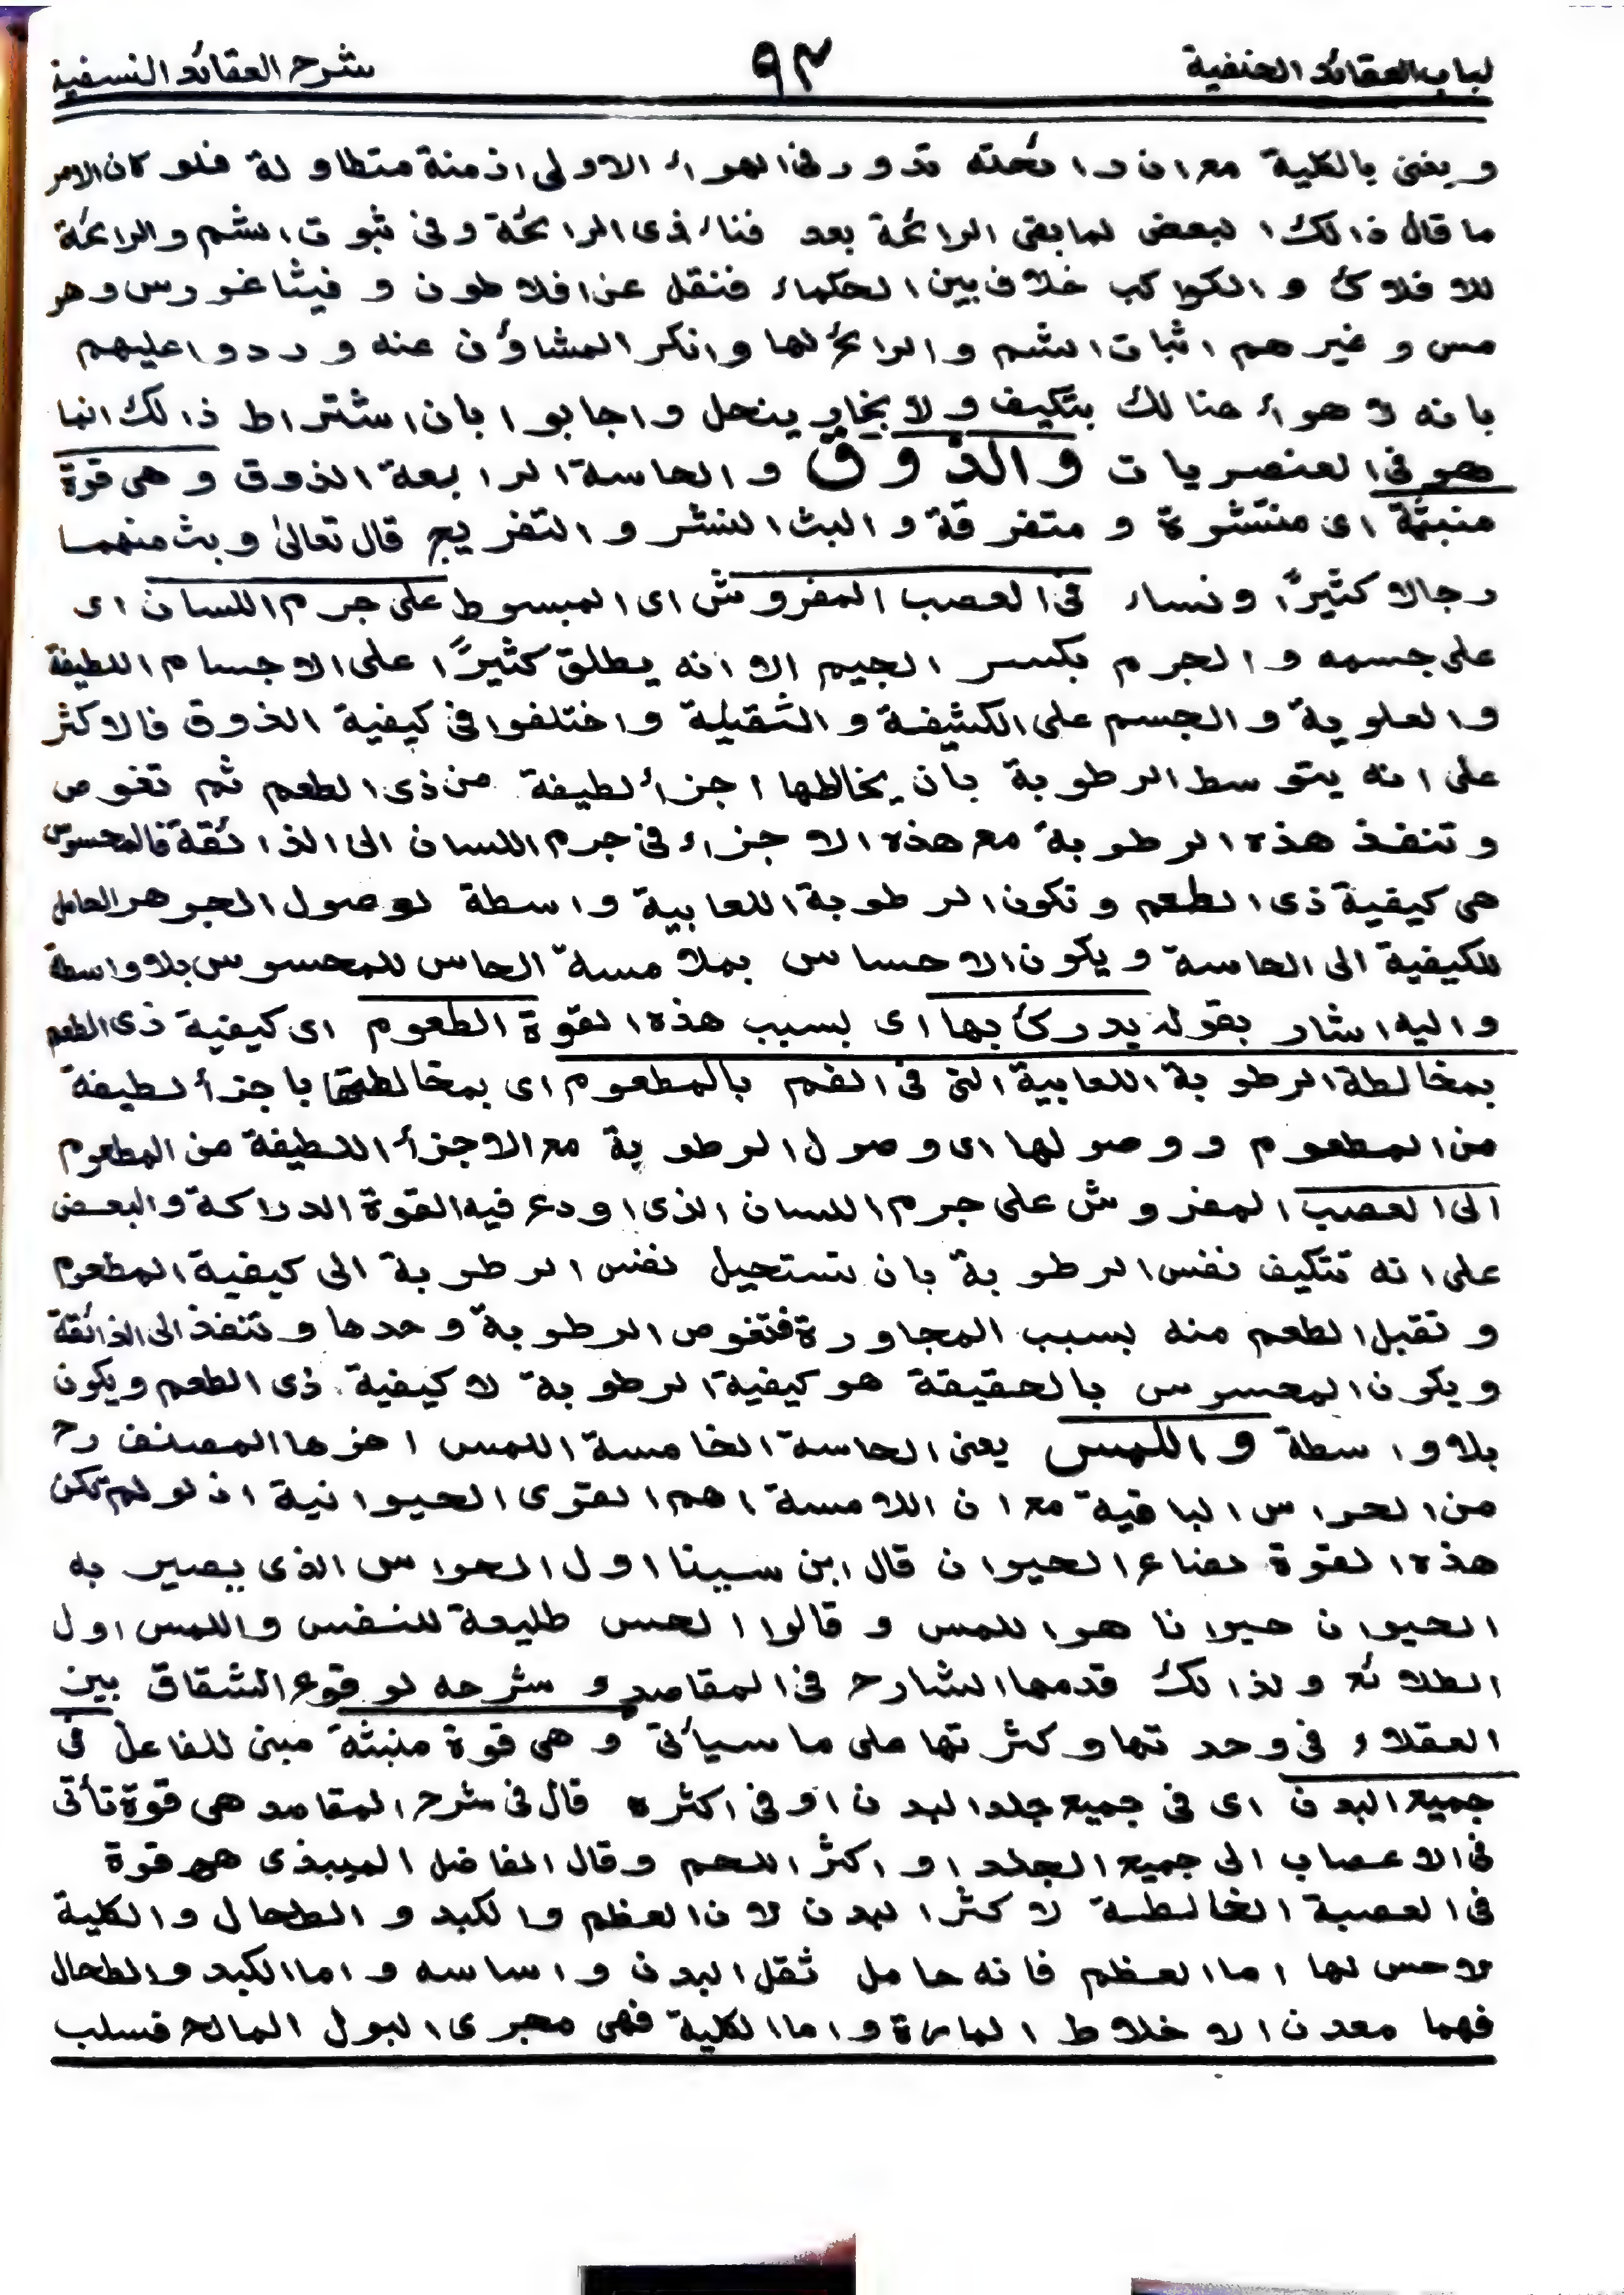 لباب العقائد الحنفية ٩٣ شرح العقائد النسفية
ويفنى بالكلية مع ان رائحته تدور فى الهواء الاولى ازمنة متطاولة فلو كان الامر
ما قال ذالك البعض لما بقى الرائحة بعد فناء ذى الرائحة وفى ثبوت الشم والرائحة
للافلاك و الكواكب خلاف بين الحكماء فنقل عن افلاطون و فيثاغورس وهر
مس و غيرهم اثبات الشم و الرائح لها وانكر المشاؤن عنه و ردوا عليهم
بانه لا هواء هنالك بتكيف ولا بخار ينحل واجابوا بان اشتراط ذالك انما
هو فى العنصريات والذوق و الحاسة الرابعة الذوق و هى قوة
منبثة اى منتشرة و متفرقة و البث النشر و التفريج قال تعالىٰ و بث منهما
رجالا كثيرًا ونساء فى العصب المفروش اى المبسوط على جرم اللسان اى
على جسمه و الجرم بكسر الجيم الا انه يطلق كثيرًا على الاجسام اللطيفة
والعلوية و الجسم على الكثيفة و الثقيلة واختلفوا فى كيفية الذوق فالاكثر
على انه يتوسط الرطوبة بان يخالطها اجزأ لطيفة من ذى الطعم ثم تغوص
و تنفذ هذه الرطوبة مع هذه الاجزاء فى جرم اللسان الى الذائقة فالمحسوس
هى كيفية ذى الطعم و تكون الرطوبة اللعابية واسطة لوصول الجوهر الحامل
للكيفية الى الحاسة و يكون الاحساس بملامسة الحاس للمحسوس بلا واسطة
واليه اشار بقوله يدرك بها اى بسبب هذه القوة الطعوم اى كيفية ذى الطعم
بمخالطة الرطوبة اللعابية التى فى الفم بالمطعوم اى بمخالطتها باجزأ لطيفة
من المطعوم و وصولها اى وصول الرطوبة مع الاجزأ اللطيفة من المطعوم
الى العصب المفروش على جرم اللسان الذى اودع فيه القوة الدراكة والبعض
على انه تتكيف نفس الرطوبة بان تستحيل نفس الرطوبة الى كيفية المطعوم
و تقبل الطعم منه بسبب المجاورة فتغوص الرطوبة وحدها و تنفذ الى الذائقة
ويكون المحسوس بالحقيقة هو كيفية الرطوبة لا كيفية ذى الطعم ويكون
بلا واسطة و اللمس يعنى الحاسة الخامسة اللمس اخرها المصنف رح
من الحواس الباقية مع ان اللامسة اهم القوى الحيوانية اذ لو لم تكن
هذه القوة لضاع الحيوان قال ابن سينا اول الحواس الذى يصير به
الحيوان حيوانا هو اللمس و قالوا الحس طليعة للنفس واللمس اول
الطلائع ولذالك قدمها الشارح فى المقاصد و شرحه لوقوع الشقاق بين
العقلاء فى وحدتها وكثرتها على ما سيأتى و هى قوة منبثة مبنى للفاعل فى
جميع البدن اى فى جميع جلد البدن او فى اكثره قال فى شرح المقاصد هى قوة تأتى
فى الاعصاب الى جميع الجلد او اكثر اللحم وقال الفاضل الميبذى هى قوة
فى العصبة الخالطة لاكثر البدن لان العظم والكبد و الطحال والكلية
لا حس لها اما العظم فانه حامل ثقل البدن و اساسه و اما الكبد والطحال
فهما معدن الاخلاط المارة و اما الكلية فهى مجرى البول المالح فسلب